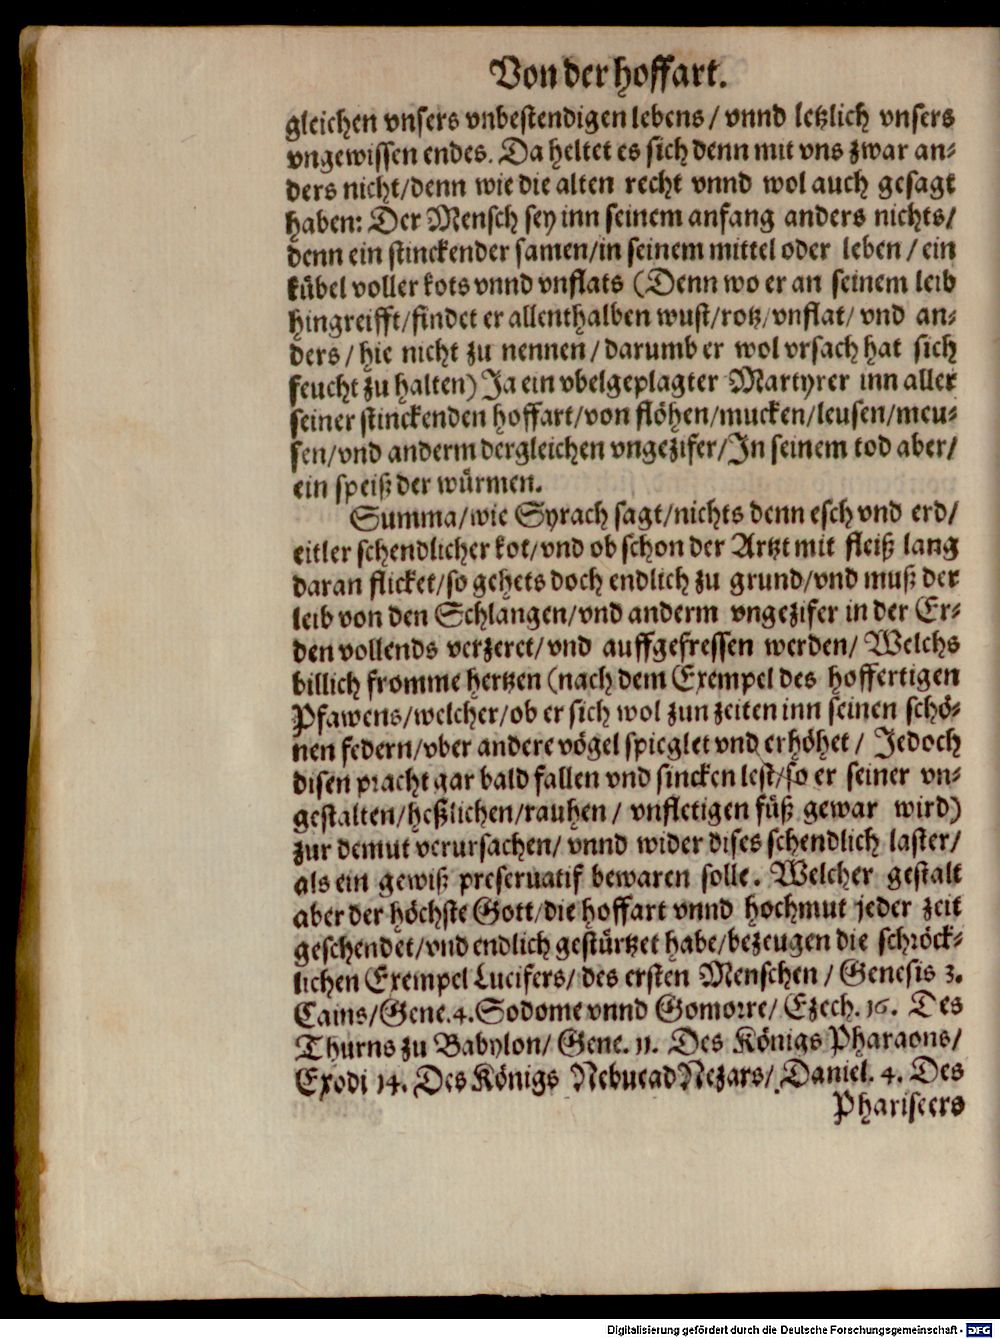 Von der hoffart.
gleichen vnsers vnbestendigen lebens / vnnd letzlich vnsers
vngewissen endes. Da heltet es sich denn mit vns zwar an-
ders nicht/denn wie die alten recht vnnd wol auch gesagt
haben: Der Mensch sey inn seinem anfang anders nichts/
denn ein stinckender samen/in seinem mittel oder leben / ein
kübel voller kots vnnd vnflats (Denn wo er an seinem leib
hingreifft/findet er allenthalben wust/rotz/vnflat/ vnd an-
ders / hie nicht zu nennen / darumb er wol vrsach hat sich
feucht zu halten) Ja ein vbelgeplagter Martyrer inn aller
seiner stinckenden hoffart/von flöhen/mucken/leusen/meu-
sen/vnd anderm dergleichen vngezifer/In seinem tod aber/
ein speiß der würmen.
Summa/wie Syrach sagt/nichts denn esch vnd erd/
eitler schendlicher kot/vnd ob schon der Artzt mit fleiß lang
daran flicket/so gehets doch endlich zu grund/vnd muß der
leib von den Schlangen/vnd anderm vngezifer in der Er-
den vollends verzeret/vnd auffgefressen werden/ Welchs
billich fromme hertzen (nach dem Exempel des hoffertigen
Pfawens/welcher/ob er sich wol zun zeiten inn seinen schö-
nen federn/vber andere vögel spieglet vnd erhöhet / Jedoch
disen pracht gar bald fallen vnd sincken lest/so er seiner vn-
gestalten/heßlichen/rauhen / vnfletigen füß gewar wird)
zur demut verursachen/ vnnd wider dises schendlich laster/
als ein gewiß preseruatif bewaren solle. Welcher gestalt
aber der höchste Gott/die hoffart vnnd hochmut jeder zeit
geschendet/vnd endlich gestürtzet habe/bezeugen die schröck-
lichen Exempel Lucifers/ des ersten Menschen / Genesis 3.
Cains/Gene.4.Sodome vnnd Gomorre/ Ezech. 16. Des
Thurns zu Babylon/ Gene. 11. Des Königs Pharaons/
Exodi 14. Des Königs NebucadNezars/ Daniel. 4. Des
Phariseers
Digitalisierung gefördert durch die Deutsche Forschungsgemeinschaft - DFG